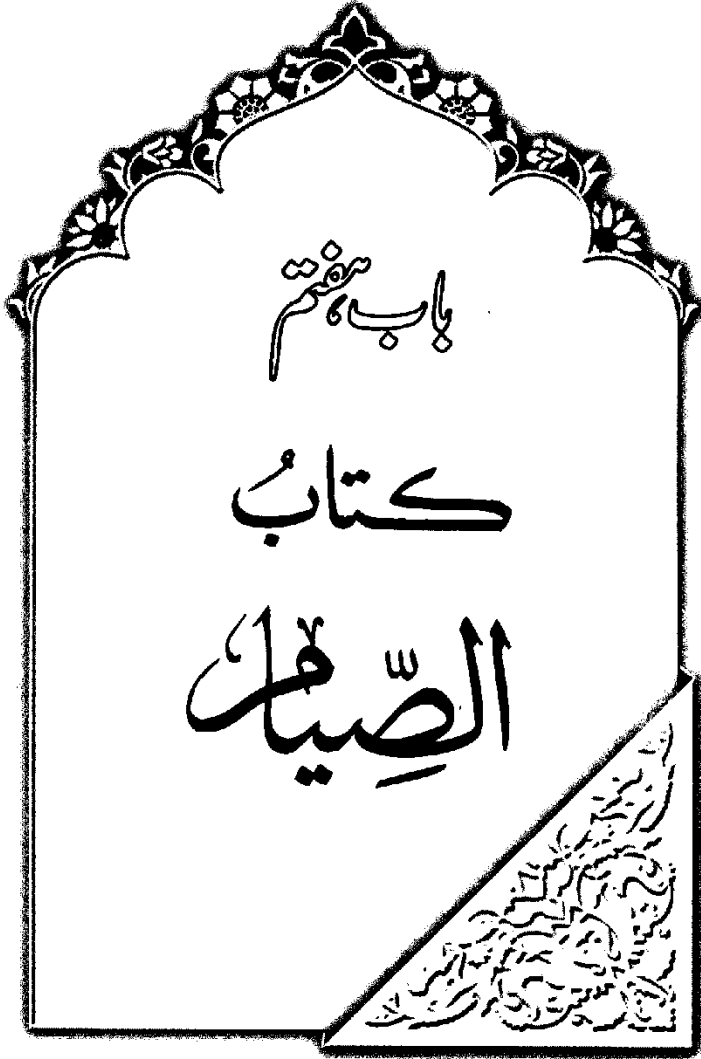 باب ہفتم
كتابُ
الصِّيام